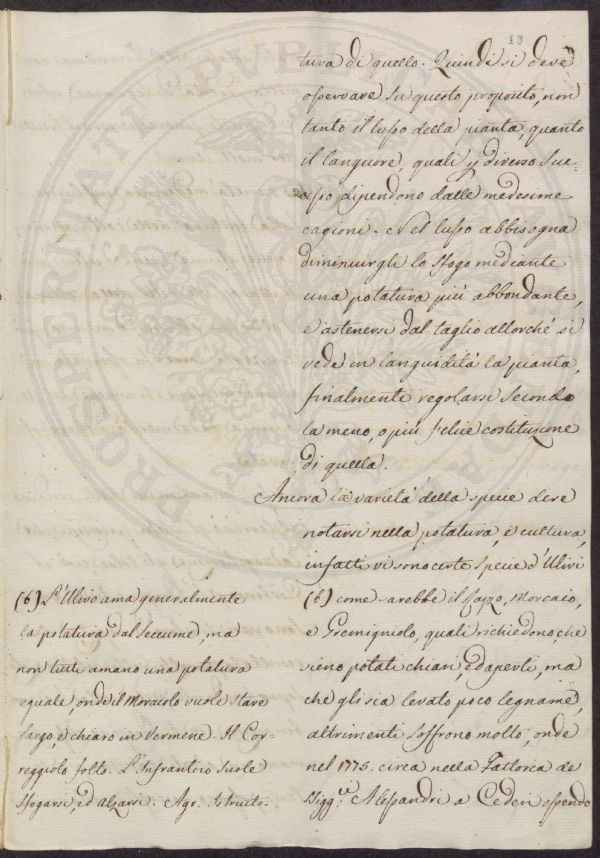 19
tura di quello. Quindi si deve
osservare su questo proposito, non
tanto il lusso della pianta, quanto
il languore, quali p diverso Suc-
cesso dipendono dalle medesime
cagioni. Nel lusso abbisogna
diminuirgli lo sfogo mediante
una potatura più abbondante,
e astenersi dal taglio allorché si
vede in languidità la pianta,
finalmente regolarsi secondo
la meno, o più felice costituzione
di quella.
Ancora la varietà della specie deve
notarsi nella potatura, e cultura,
infatti vi sono certe specie d'Ulivi
(6) come sarebbe il Morcaio,
e Gremigniolo, quali richiedono, che
sieno potati chiari, ed aperti, ma
che gli sia levato poco legname,
altrimenti soffrono molto, onde
nel 1775. circa nella Fattoria de
Sigg.ri Alessandri a Cederi essendo
(6) L'Ulivo ama generalmente
la potatura dal Seccume, ma
non tutti amano una potatura
eguale, onde il Moraiolo vuole stare
largo, e chiaro in Vermene. Il Cor-
reggiolo folto. L'Infrantoio suole
sfogarsi, ed alzarsi. Agr. Istruito.
PROSPERITATE PUBL